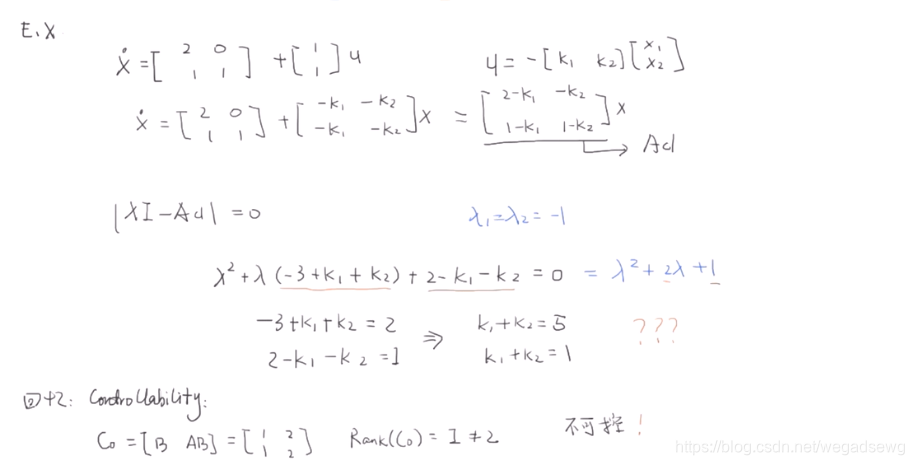 E.X
ẋ = [2 0; 1 1] + [1; 1] u    u = -[k₁ k₂][x₁; x₂]
ẋ = [2 0; 1 1] + [-k₁ -k₂; -k₁ -k₂] x = [2-k₁ -k₂; 1-k₁ 1-k₂] x → Acl
|λI - Acl| = 0    λ₁=λ₂= -1
λ² + λ(-3+k₁+k₂) + 2-k₁-k₂ = 0 = λ²+2λ+1
-3+k₁+k₂ = 2 ⇒ k₁+k₂=5 ???
2-k₁-k₂ =1    k₁+k₂=1
回忆: Controllability:
Co = [B AB] = [1 2; 1 2]    Rank(Co) = 1 ≠ 2    不可控!
https://blog.csdn.net/wegadsewg